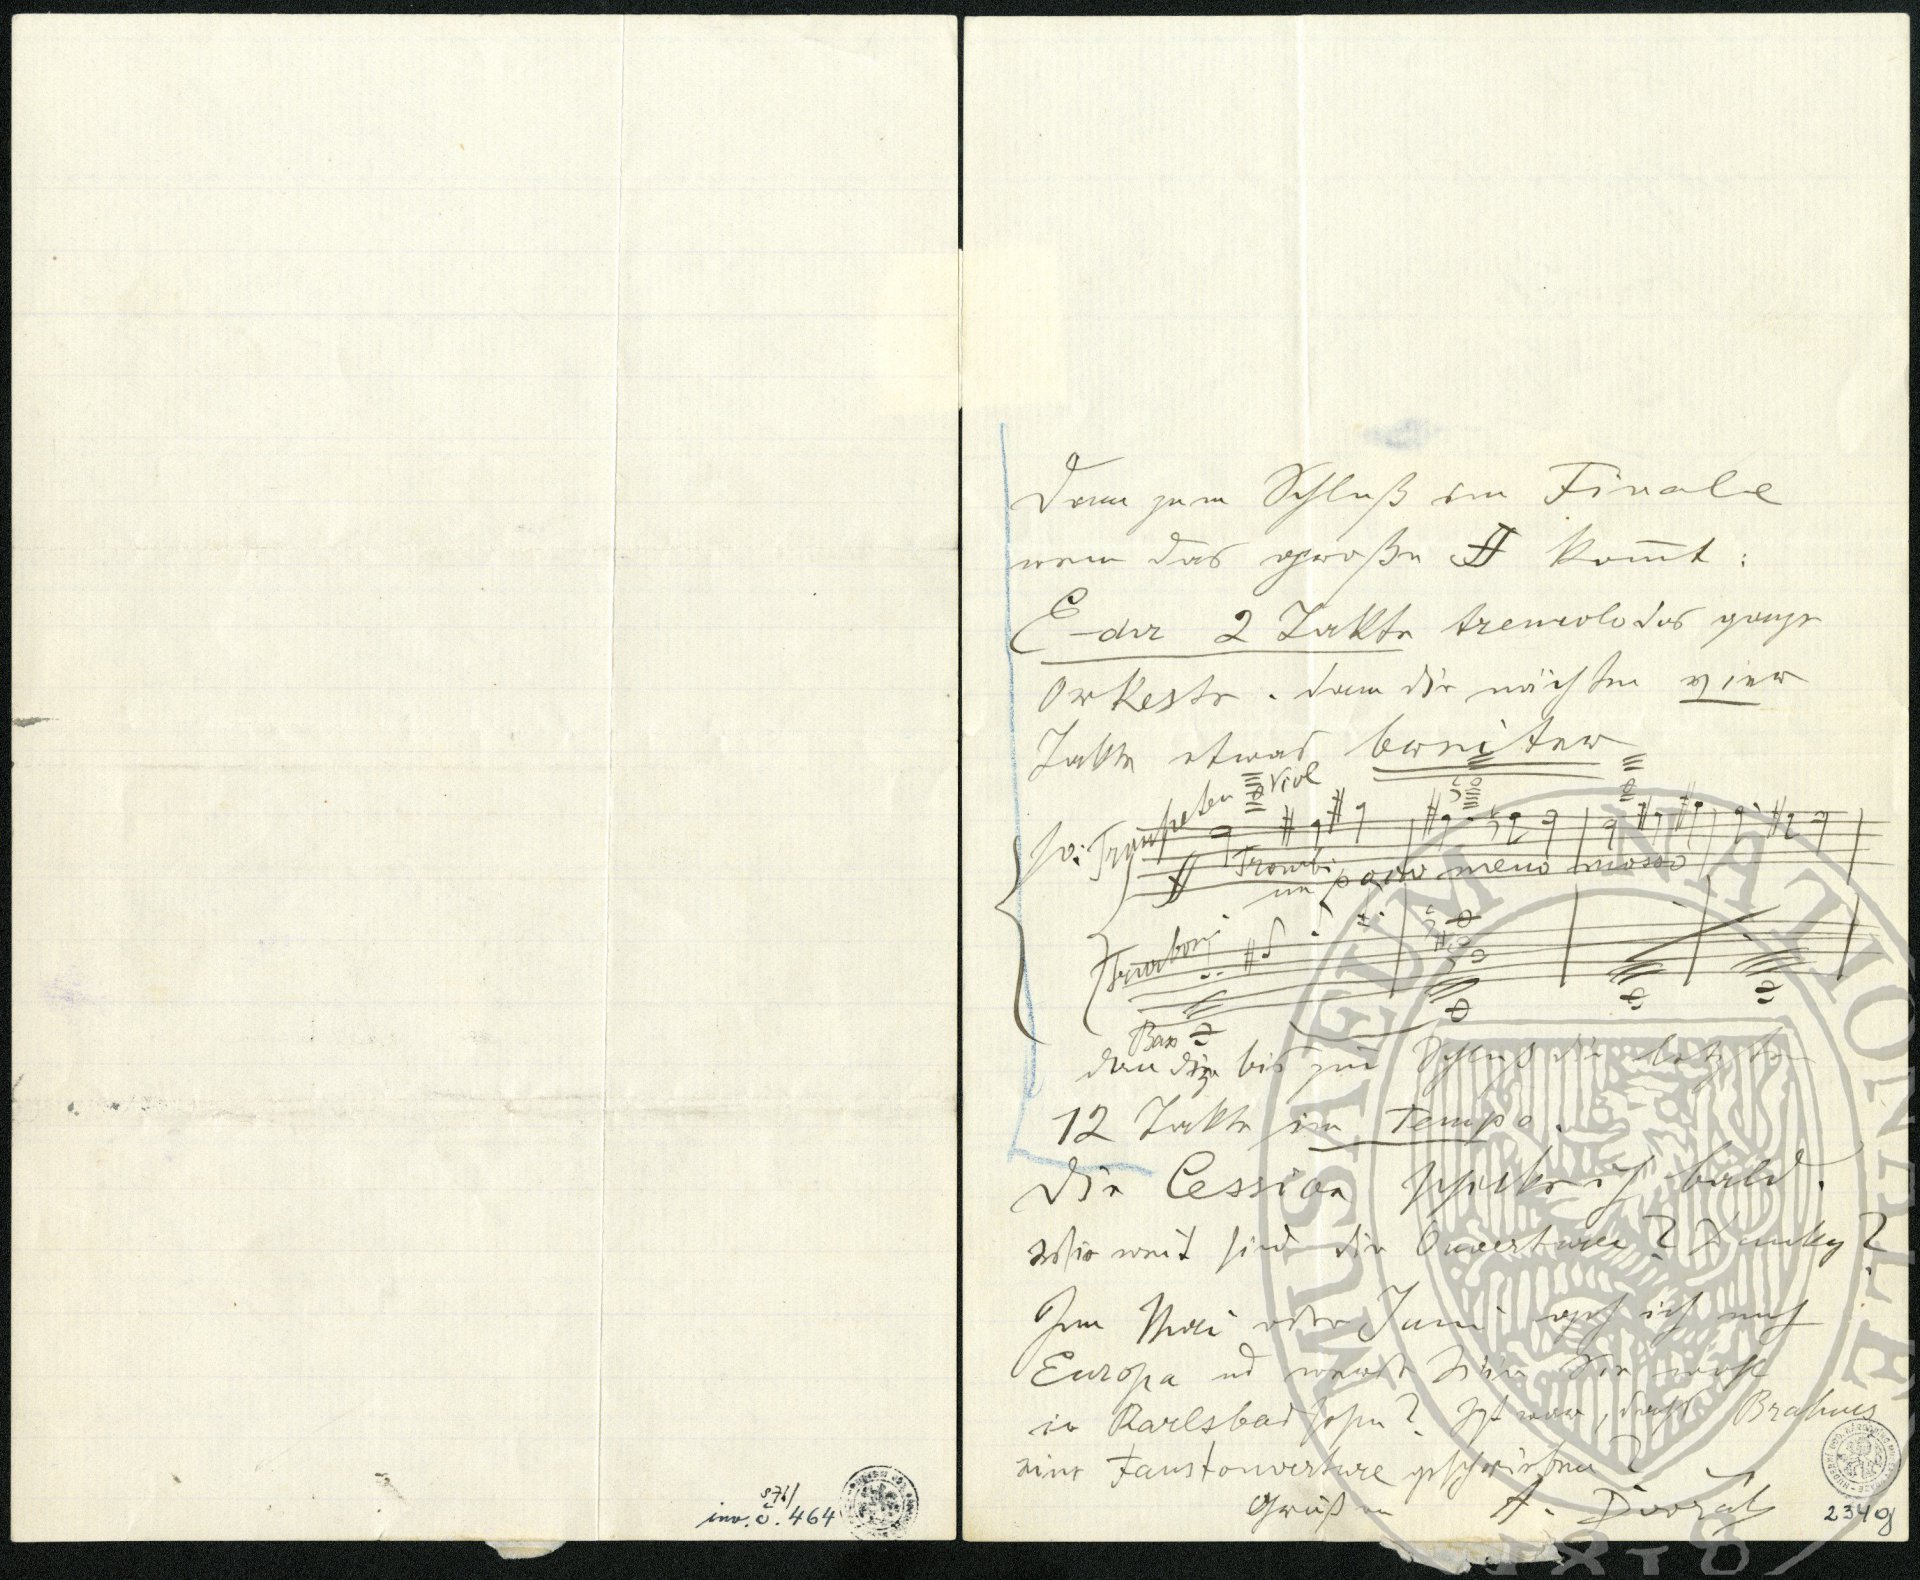 Dann zum Schluß im Finale
wenn das große ff kom̅t:
E dur 2 Takte tremolo das ganze
Orkester. dann die nächsten vier
Takte etwas breiter
so: Trompeten Viol
ff Trombi
un poco meno mosso
Tromboni
Bass
dann bis zum Schluß die letzten
12 Takte im Tempo.
Die Cession schicke ich bald.
Wie weit sind die Ouverturen? Dumky?
Im Mai oder Juni geh ich nach
Europa und werde Sie wohl
in Karlsbad sehn? Ist wahr, daß Brahms
eine Faustouverture geschrieben?
Grüßen A. Dvořák
S76/
inv. č. 464
2349
MUSEUM NATIONALE
1818